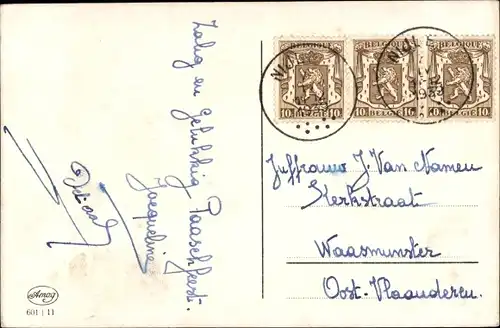 Zalig en gelukkig Paaschfeest.
Jacqueline
BELGIQUE BELGIQUE BELGIQUE
10 BELGIE 10 10 BELGIE 10 10 BELGIE 10
Juffrouw J. Van Namen
Kerkstraat
Waasmunster
Oost-Vlaanderen.
Amag
601 | 11